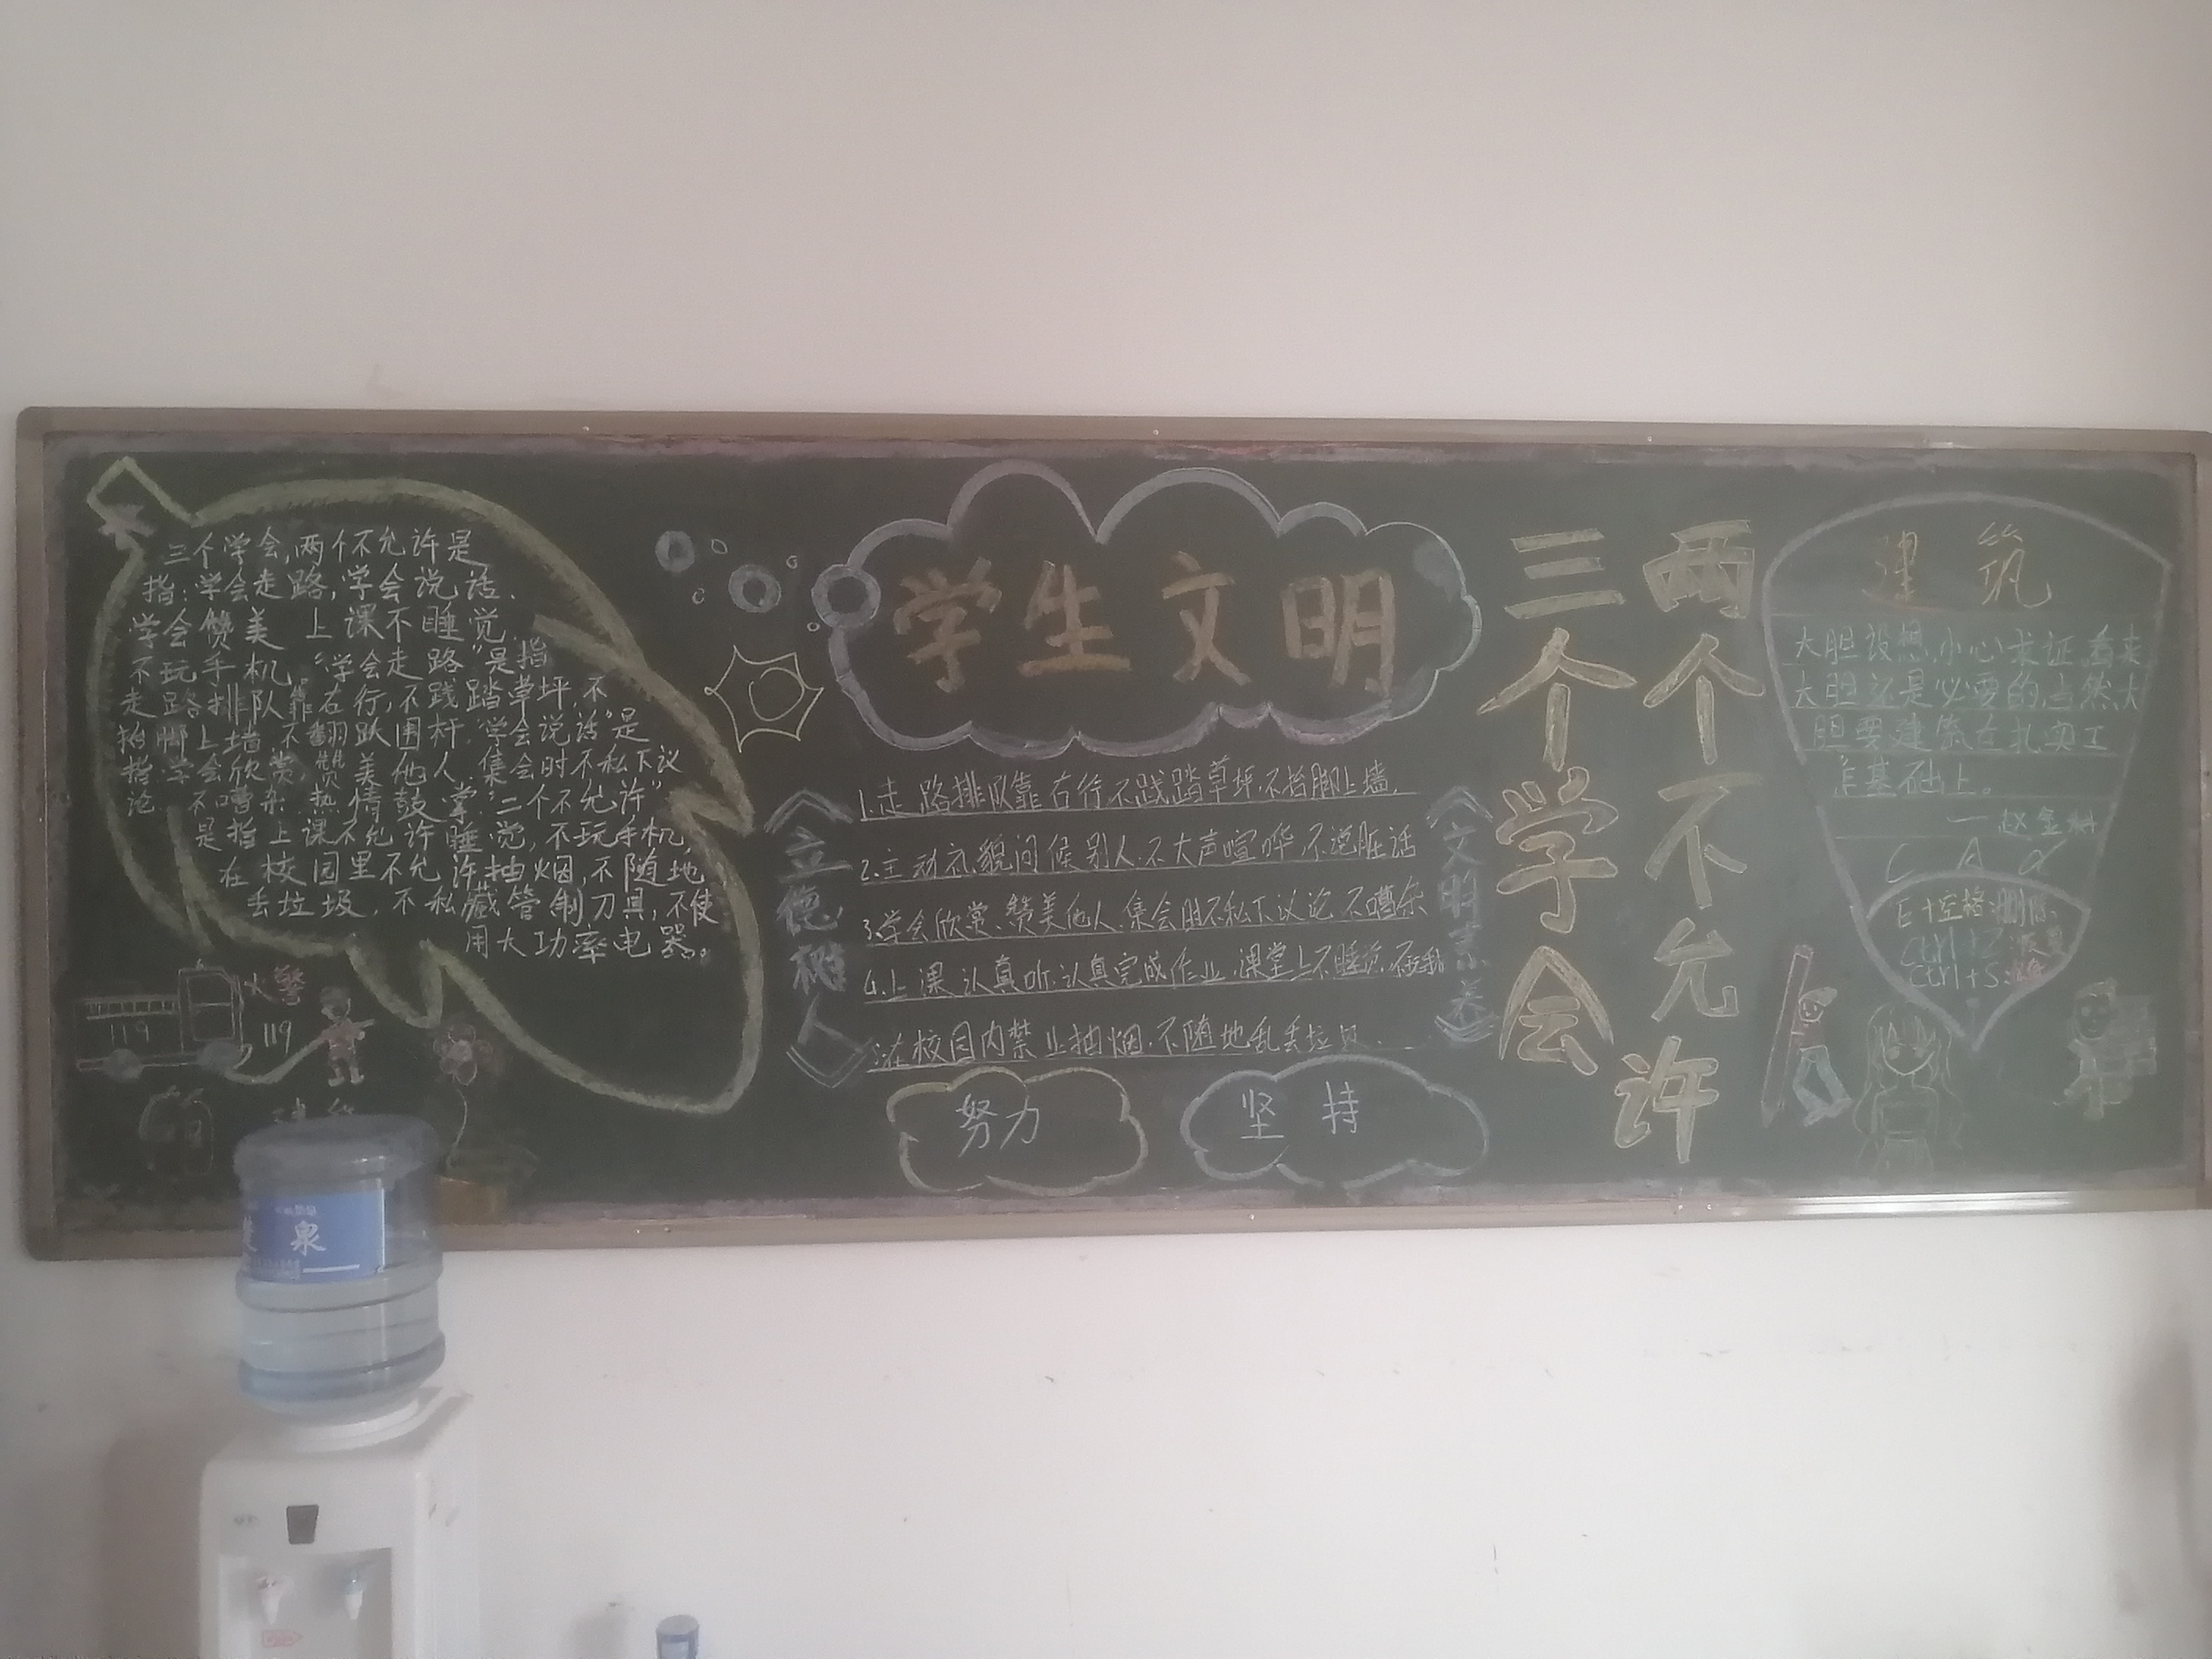 三个学会,两个不允许是
指:学会走路,学会说话.
学会赞美 上课不睡觉
不玩手机"学会走路"是指
走路排队靠右行,不践踏草坪,不
抬脚上墙不翻跃围杆."学会说话"是
指学会欣赏赞美他人.集会时不私下议
论不嘈杂热情鼓掌"二个不允许"
是指上课不允许睡觉,不玩手机,
在校园里不允许抽烟,不随地
丢垃圾.不私藏管制刀具,不使
用大功率电器。
火警
119
119
学生文明
《立德树人》
1.走路排队靠右行.不践踏草坪.不抬脚上墙.
2.主动礼貌问候别人.不大声喧哗.不说脏话
3.学会欣赏、赞美他人.集会时不私下议论不嘈杂
4.上课认真听.认真完成作业.课堂上不睡觉.不玩手机
在校园内禁止抽烟.不随地乱丢垃圾.
《文明素养》
努力
坚持
三个学会
两个不允许
建筑
大胆设想,小心求证,看来
大胆还是必要的,当然大
胆要建筑在扎实工
作基础上。
一赵
C A d
E+空格:删除
Ctrl+Z:
Ctrl+S:
泉